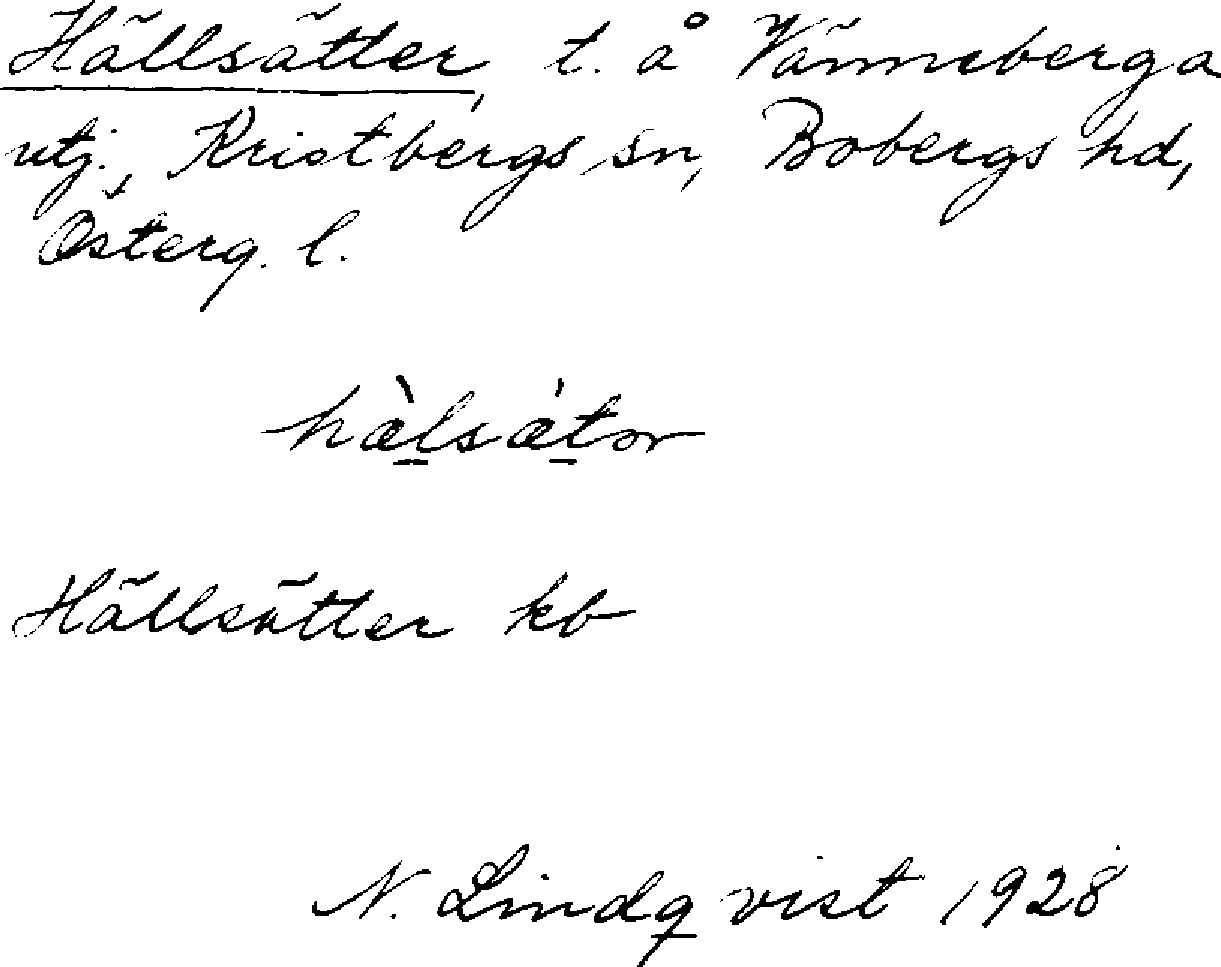 Hällsätter, t. å Vänneberga
utj., Kristbergs sn, Bobergs hd,
Österg. l.
hæ̀lsætər
Hällsätter kb
N. Lindqvist 1928